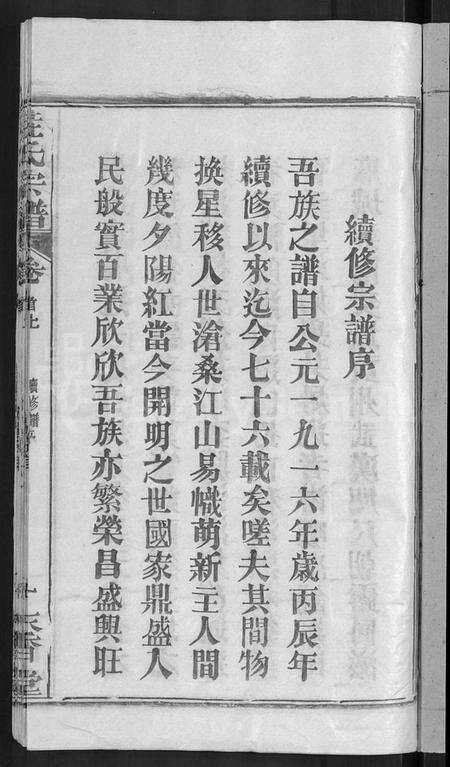 續修宗譜序
吾族之譜自公元一九一六年歲丙辰年
續修以來迄今七十六載矣嗟夫其間物
換星移人世滄桑江山易幟萌新主人間
幾度夕陽紅當今開明之世國家鼎盛人
民般實百業欣欣吾族亦繁榮昌盛興旺
氏宗譜
卷首上
續修譜序